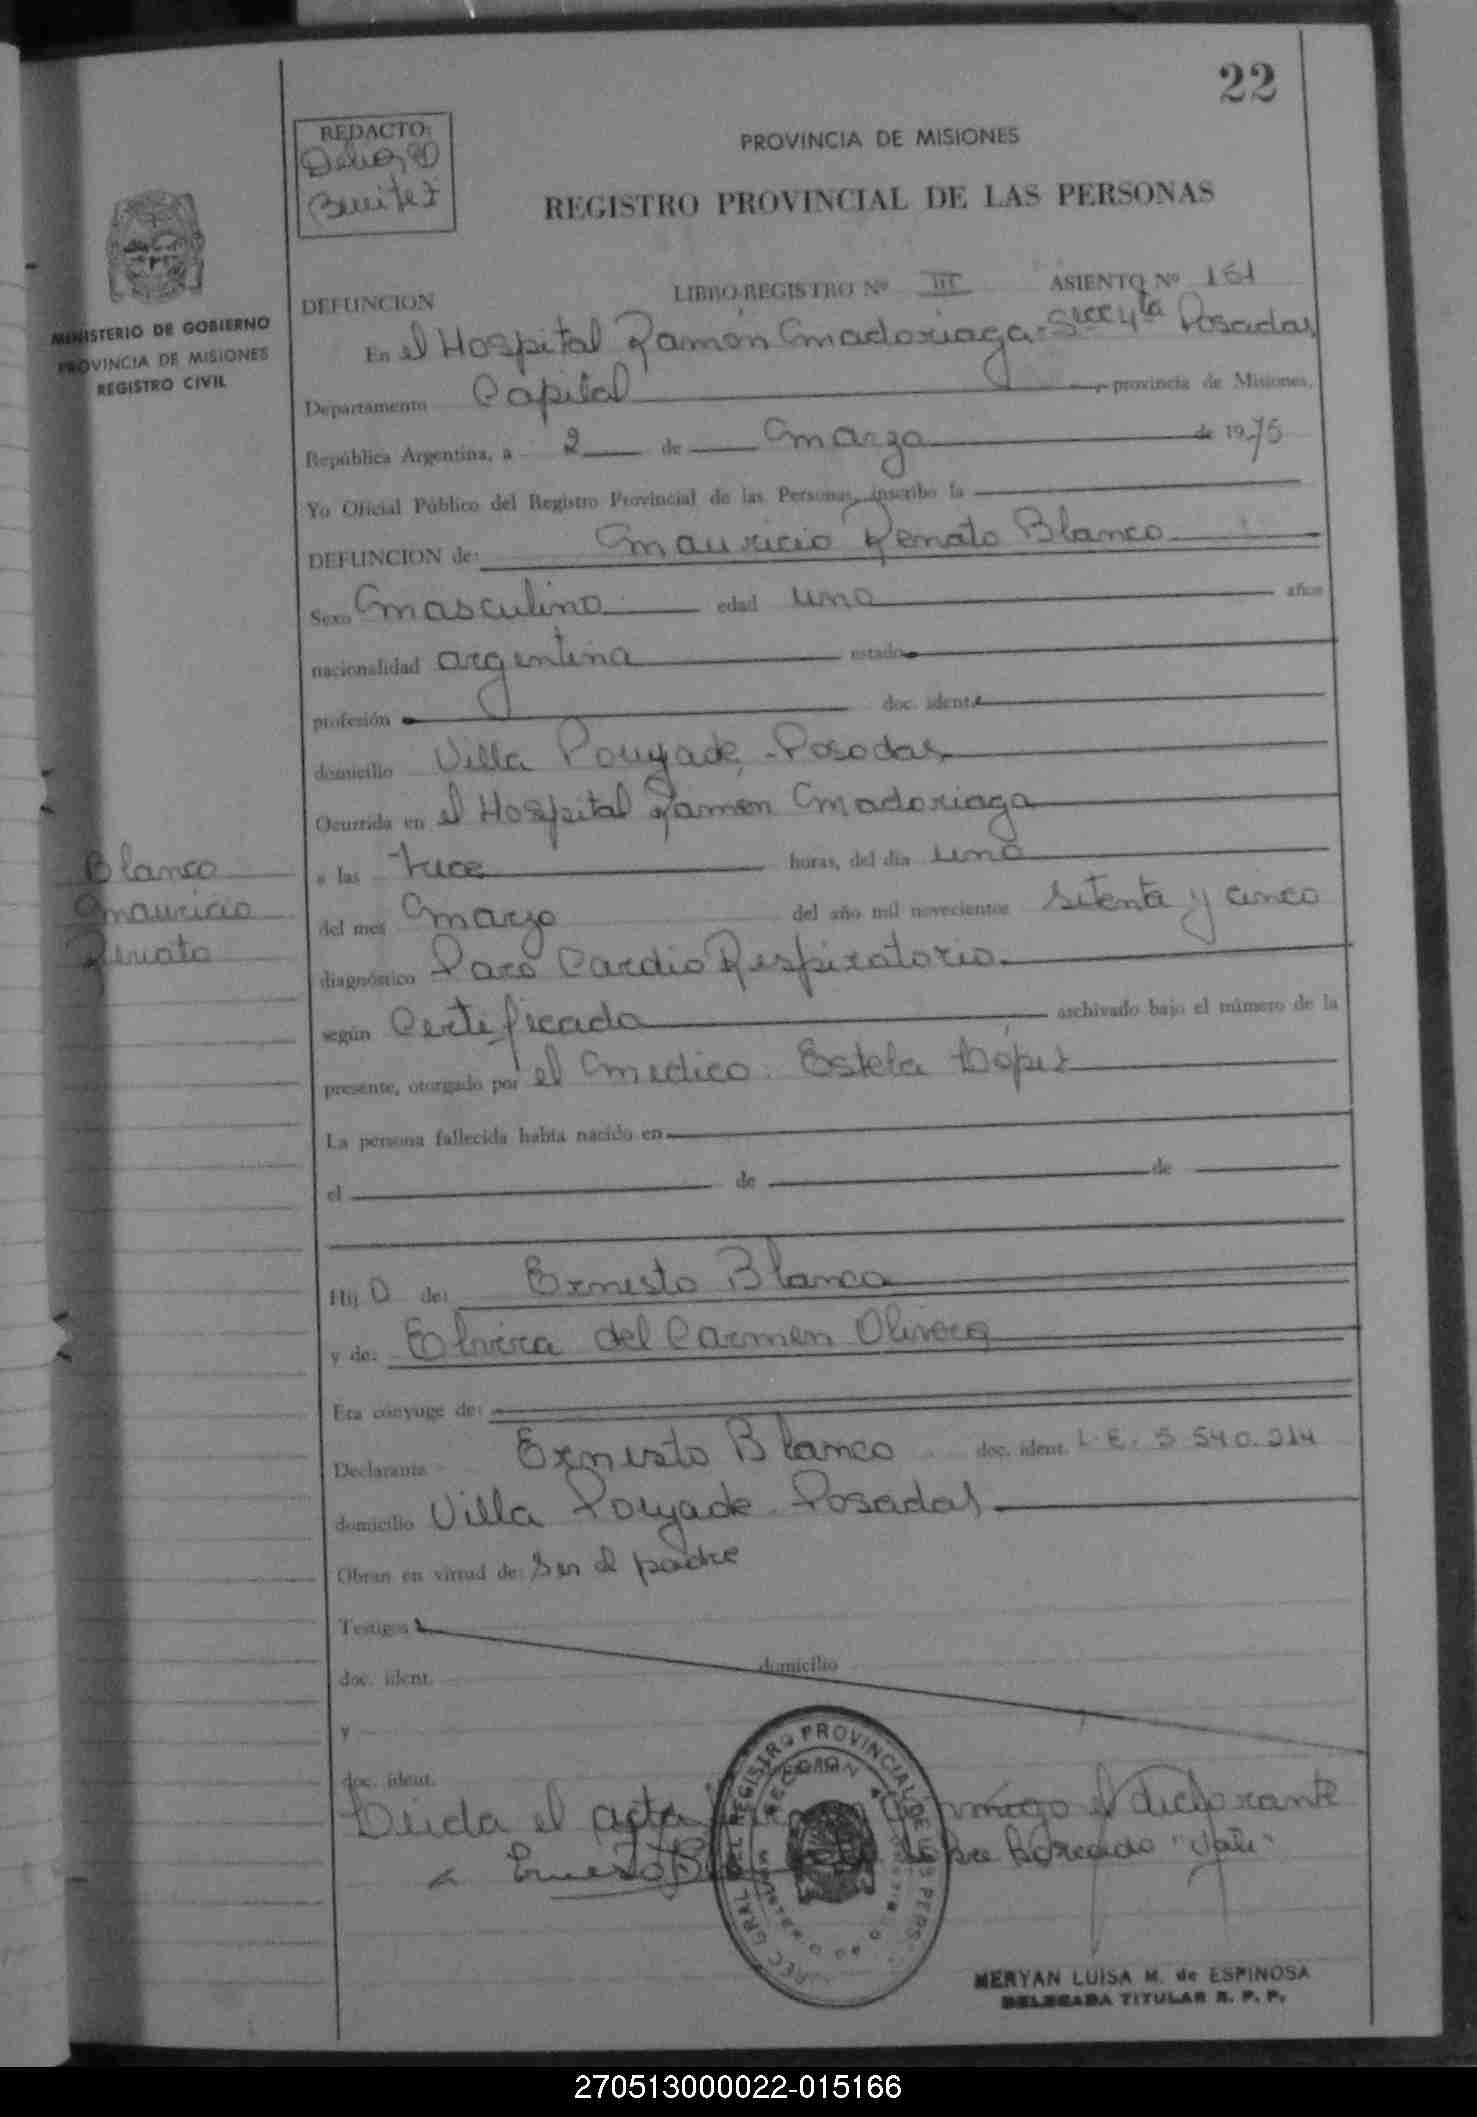 22
REDACTO:
Benitez
PROVINCIA DE MISIONES
REGISTRO PROVINCIAL DE LAS PERSONAS
MINISTERIO DE GOBIERNO
PROVINCIA DE MISIONES
REGISTRO CIVIL
DEFUNCION LIBRO-REGISTRO Nº III ASIENTO Nº 161
En el Hospital Ramón Madoriaga. Secc 4ta Posadas
Departamento Capital provincia de Misiones,
República Argentina, a 2 de Marzo de 1975
Yo Oficial Público del Registro Provincial de las Personas, inscribo la
DEFUNCION de: Mauricio Renato Blanco
Sexo Masculino edad uno años
nacionalidad argentina estado
profesión doc. ident.
domicilio Villa Pouyade - Posadas
Ocurrida en el Hospital Ramón Madoriaga
Blanco
Mauricio
Renato
a las trece horas, del día uno
del mes Marzo del año mil novecientos setenta y cinco
diagnóstico Paro Cardio Respiratorio
según Certificado archivado bajo el número de la
presente, otorgado por el Medico: Estela López
La persona fallecida había nacido en
el de de
Hij o de: Ernesto Blanco
y de: Elvira del Carmen Olivera
Era cónyuge de:
Declarante Ernesto Blanco doc. ident. L.E. 5 540.214
domicilio Villa Pouyade - Posadas
Obran en virtud de: Ser el padre
Testigos
doc. ident. domicilio
y
doc. ident.
Leida el acta conmigo el declarante
Ernesto B sobre borrado "Vale"
REGISTRO PROVINCIAL DE LAS PERS
MERYAN LUISA M. de ESPINOSA
DELEGADA TITULAR R. P. P.
270513000022-015166